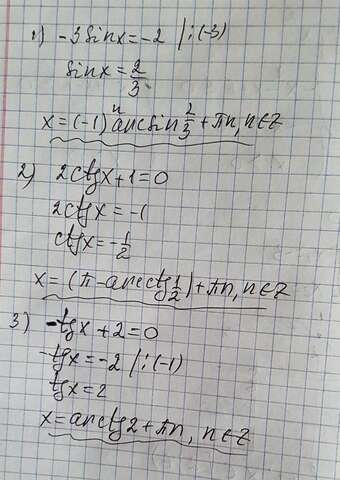 1) -3sinx=-2 /:(-3)
sinx=2/3
x=(-1)ⁿarcsin 2/3+πn, n∈Z
2) 2ctgx+1=0
2ctgx=-1
ctgx=-1/2
x=(π-arcctg 1/2)+πn, n∈Z
3) -tgx+2=0
-tgx=-2 /:(-1)
tgx=2
x=arctg2+πn, n∈Z